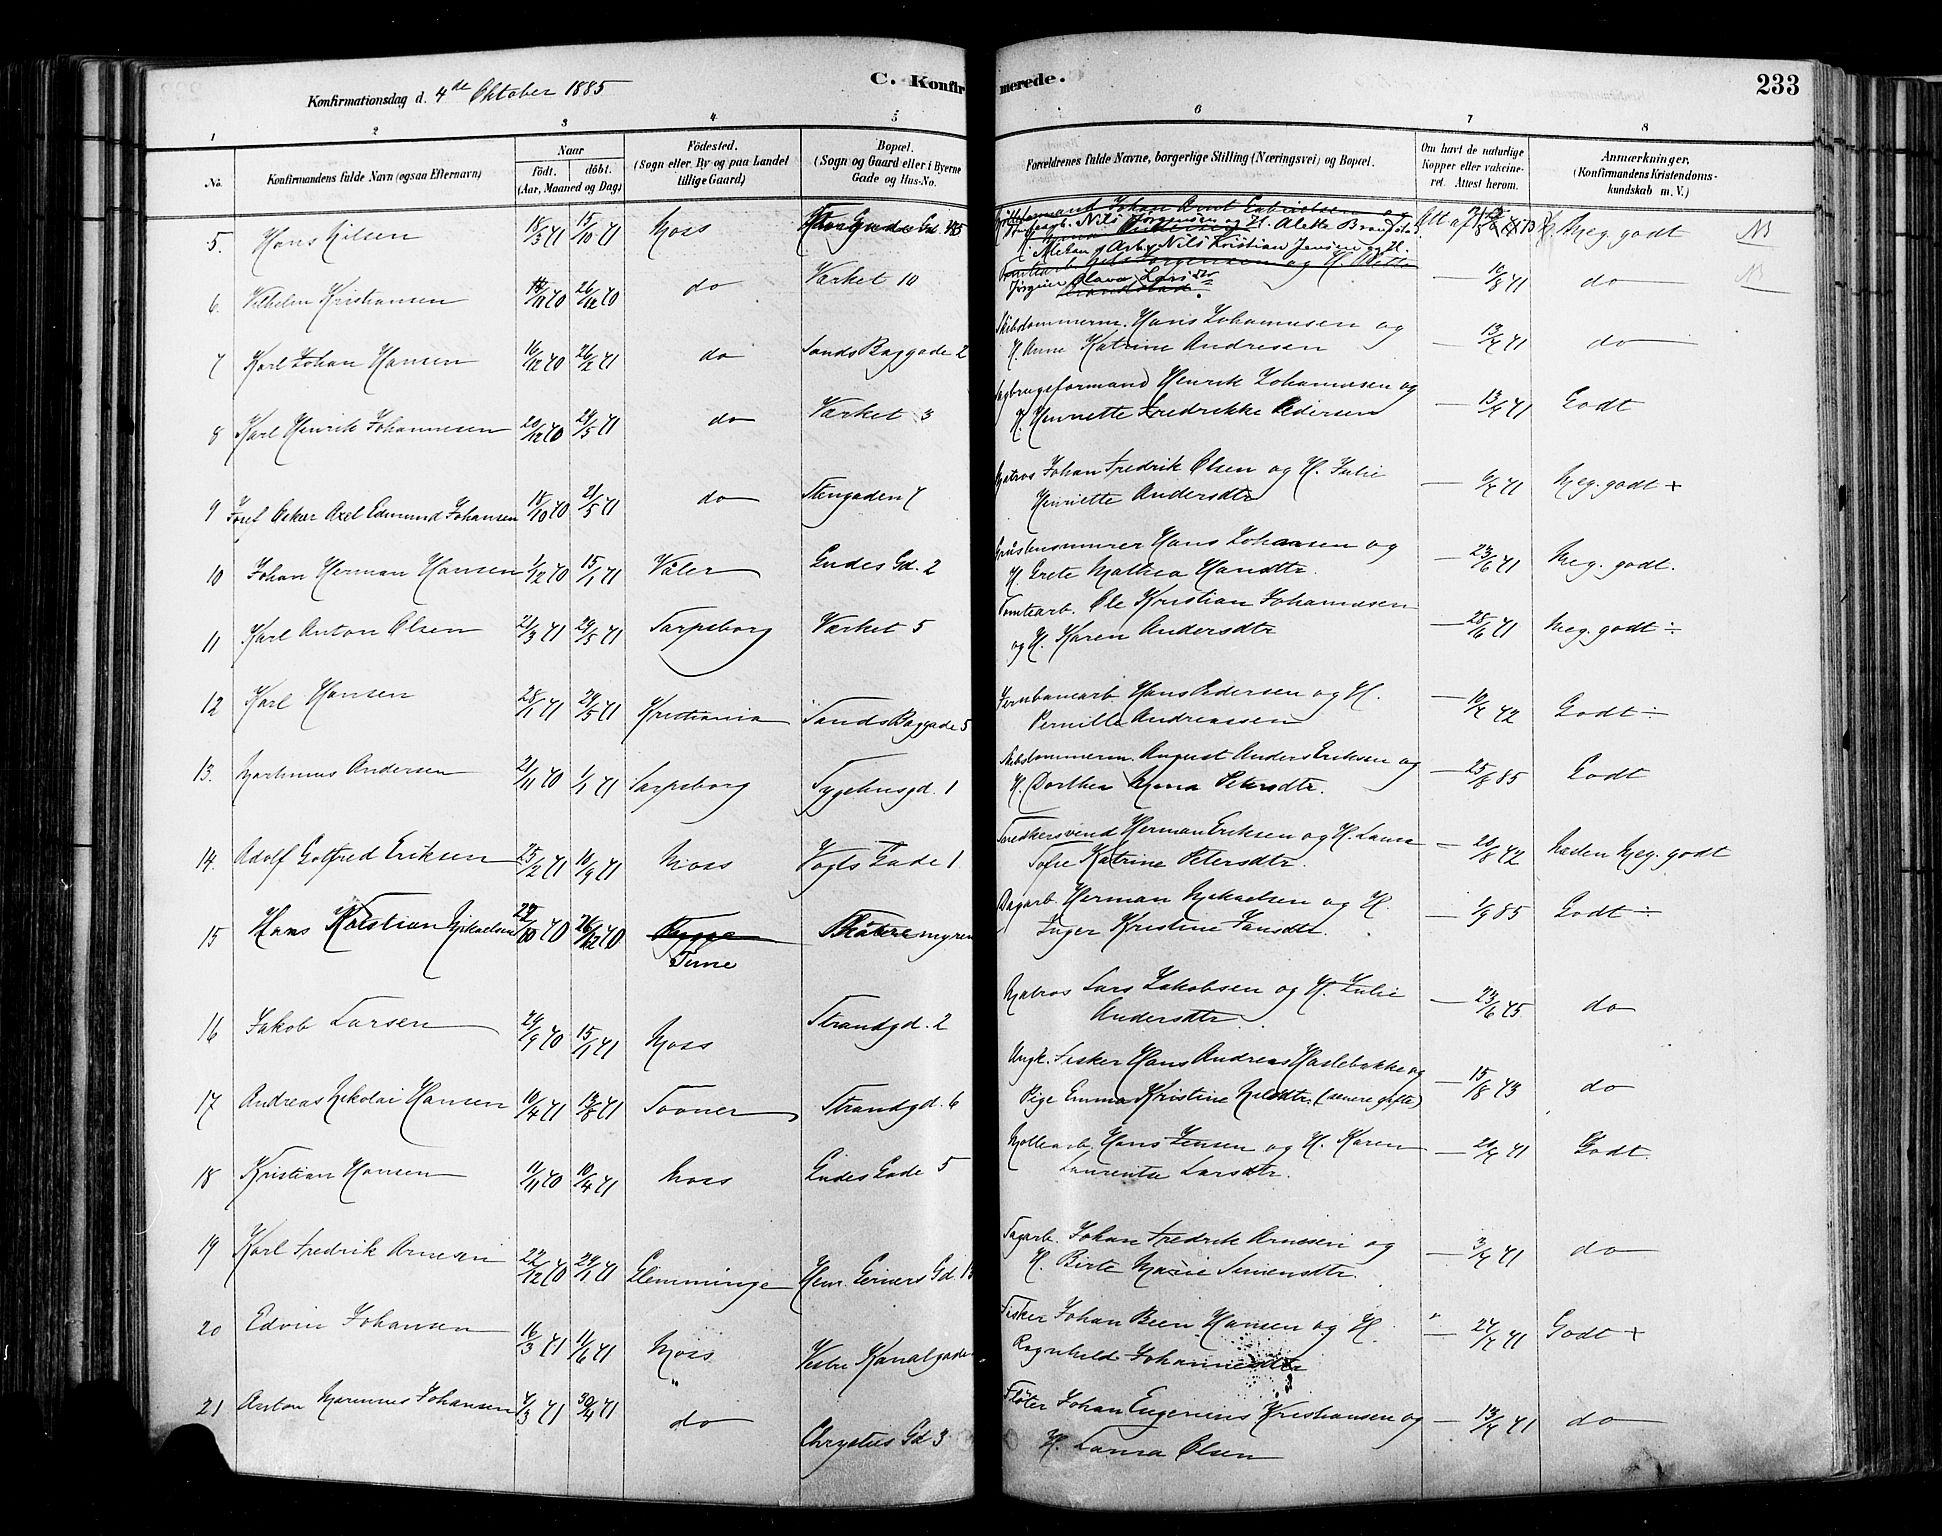 Konfirmationsdag d. 4de Oktober 1885
C. Konfir merede.
233
1 2 3 4 5 6 7 8
No.
Konfirmandens fulde Navn (ogsaa Efternavn)
Naar
født. døbt.
(Aar, Maaned og Dag)
Fødested.
(Sogn eller By og paa Landet
tillige Gaard)
Bopæl.
(Sogn og Gaard eller i Byerne
Gade og Hus-No.
Forældrenes fulde Navne, borgerlige Stilling (Næringsvei) og Bopæl.
Om havt de naturlige
Kopper eller vakcine-
ret. Attest herom.
Anmærkninger.
(Konfirmandens Kristendoms-
kundskab m. V.)
5. Hans Nilsen 18/3 71 15/10 71 Moss Meg. godt NB
Nils Jørgensen og H. Alette
6. Vilhelm Kristiansen 26/12 70 do Værket 10 Nils Kristian Jensen og H. — 10/8 71 do NB
Jørgine Olava Larsdtr
7 Karl Johan Hansen 16/12 70 26/2 71 do Sands Baggade 2 Skibstømmerm. Hans Johannesen og — 13/7 71 do
H. Anne Katrine Andresen
8 Karl Henrik Johannesen 20/12 70 29/5 71 do Værket 3 Sagbrugsformand Henrik Johannesen og — 13/7 71 Godt
H. Henriette Fredrikke Pedersen
9 Josef Oskar Axel Edmund Johansen 18/10 70 21/5 71 do Stengaden 7 Matros Johan Fredrik Olsen og H. Julie — 6/7 71 Meg. godt +
Henriette Andersdtr
10 Johan Herman Hansen 1/12 70 15/1 71 Våler Gudes Gd. 2 Hans Johansen og — 23/6 71 Meg. godt.
H. Grete Mathea Hansdtr.
11 Karl Anton Olsen 21/3 71 29/5 71 Sarpsborg Værket 5 Tomtearb. Ole Kristian Johannesen — 28/6 71 Meg. godt ÷
og H. Karen Andersdtr
12 Karl Hansen 28/1 71 29/5 71 Kristiania Sands Baggade 5 Jernbanearb. Hans Pedersen og H. — 10/7 72 Godt ÷
Pernille Andreassen
13. Marthinus Andersen 21/11 70 1/1 71 Sarpsborg Sygehusgd. 1 Skibstømmerm. August Anders Eriksen og — 25/8 85 Godt
H. Dorthea Maria Petersdtr.
14. Adolf Gotfred Eriksen 25/2 71 10/9 71 Moss Vogts Gade 1 Snedkersvend Herman Eriksen og H. Laura — 20/8 72 Næsten Meg. godt
Sofie Katrine Petersdtr.
15 Hans Kristian Mikaelsen 29/10 70 26/12 70 Rygge Skateremyren Dagarb. Herman Mikaelsen og H. — 1/9 85 Godt ÷
Tune Inger Kristine Hansdtr.
16 Jakob Larsen 29/9 70 15/1 71 Moss Strandgd. 2 Matros Lars Jakobsen og H. Julie — 23/6 75 do
Andersdtr.
17 Andreas Nikolai Hansen 10/4 71 13/8 71 Sooner Strandgd. 6 Ungk. Fisker Hans Andreas Haslebakke og — 15/8 73 do
Pige Emma Kristine Nilsdtr. (senere gifte)
18 Kristian Hansen 11/11 70 10/4 71 Moss Gudes Gade 5 Møllearb. Hans Jensen og H. Karen — 20/7 71 Godt
Laurentse Larsdtr.
19 Karl Fredrik Arnesen 22/12 70 29/1 71 Glemminge Henr. Gerners Gd. 1 Sagarb. Johan Fredrik Arnesen og — 3/7 71 do
H. Birte Marie Simensdtr.
20 Edvin Johansen 16/3 71 11/6 71 Moss Vestre Kanalgade Fisker Johan Been Hansen og H. " — 27/7 71 Godt +
Ragnhild Johannesdtr
21 Anton Marinus Johansen 7/3 71 30/4 71 do Chrysties Gd 3 Fløter Johan Eugenius Kristiansen og — 13/7 71 do
H. Laura Olsen